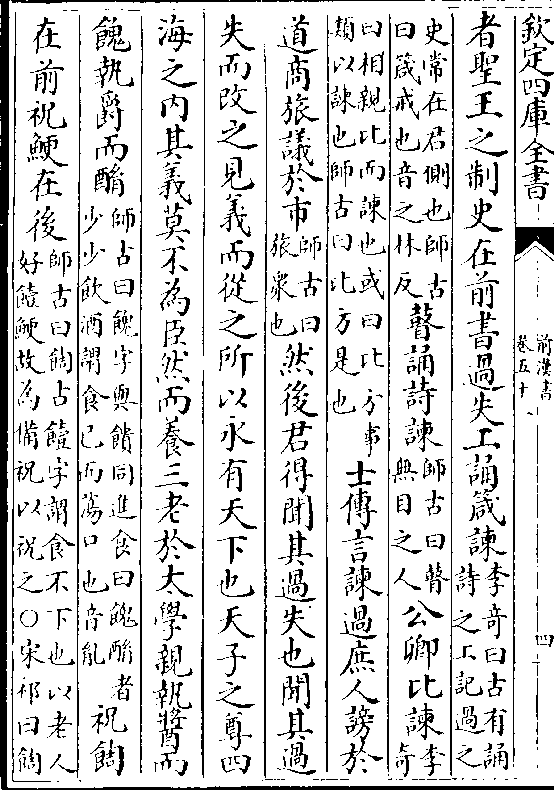 欽定四庫全書
前漢書
卷五十一
四
者聖王之制史在前書過失工誦箴諫李奇曰古有誦詩之工記過之
史常在君側也師古曰箴戒也音之林反瞽誦詩諫師古曰瞽無目之人公卿比諫李奇
曰相親比而諫也或曰比方事類以諫也師古曰比方是也士傳言諫過庶人謗於
道商旅議於市師古曰旅衆也然後君得聞其過失也聞其過
失而改之見義而從之所以永有天下也天子之尊四
海之內其義莫不為臣然而養三老於太學親執醬而
餽執爵而酳師古曰餽字與饋同進食曰餽酳者少少飲酒謂食已而蕩口也音胤祝䭇
在前祝鯁在後師古曰䭇古饐字謂食不下也以老人好饐鯁故為備祝以祝之○宋祁曰䭇